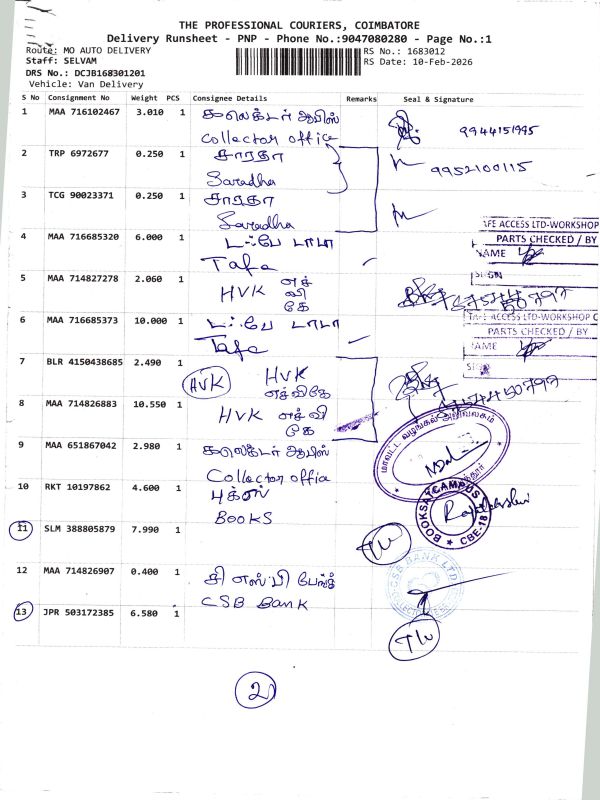 THE PROFESSIONAL COURIERS, COIMBATORE
Delivery Runsheet - PNP - Phone No.:9047080280 - Page No.:1
Route: MO AUTO DELIVERY
RS No.: 1683012
Staff: SELVAM
RS Date: 10-Feb-2026
DRS No.: DCJB168301201
Vehicle: Van Delivery
S No Consignment No Weight PCS Consignee Details Remarks Seal & Signature
1 MAA 716102467 3.010 1 கலெக்டர் ஆபிஸ்
Collector office 9944151995
2 TRP 6972677 0.250 1 சாரதா
Saradha 9952100115
3 TCG 90023371 0.250 1 சாரதா
Saradha
AFE ACCESS LTD-WORKSHOP
4 MAA 716685320 6.000 1 டஃபே டாடா
PARTS CHECKED / BY
Tafe
NAME
5 MAA 714827278 2.060 1 HVK எச் வி கே
SIGN
6 MAA 716685373 10.000 1 டஃபே டாடா
TAFE ACCESS LTD-WORKSHOP C
PARTS CHECKED / BY
Tafe
NAME
7 BLR 4150438685 2.490 1 HVK
SIGN
HVK எச்விகே
8 MAA 714826883 10.550 1 HVK எச் வி
கே
மாவட்ட வழங்கல் அலுவலகம்
9 MAA 651867042 2.980 1 கலெக்டர் ஆபிஸ்
Collector office
10 RKT 10197862 4.600 1 புக்ஸ்
BOOKS
BOOKSATCAMPUS
CBE-18
11 SLM 388805879 7.990 1
12 MAA 714826907 0.400 1 சி எஸ் பி பேங்க்
CSB Bank
CSB BANK LTD
13 JPR 503172385 6.580 1
2